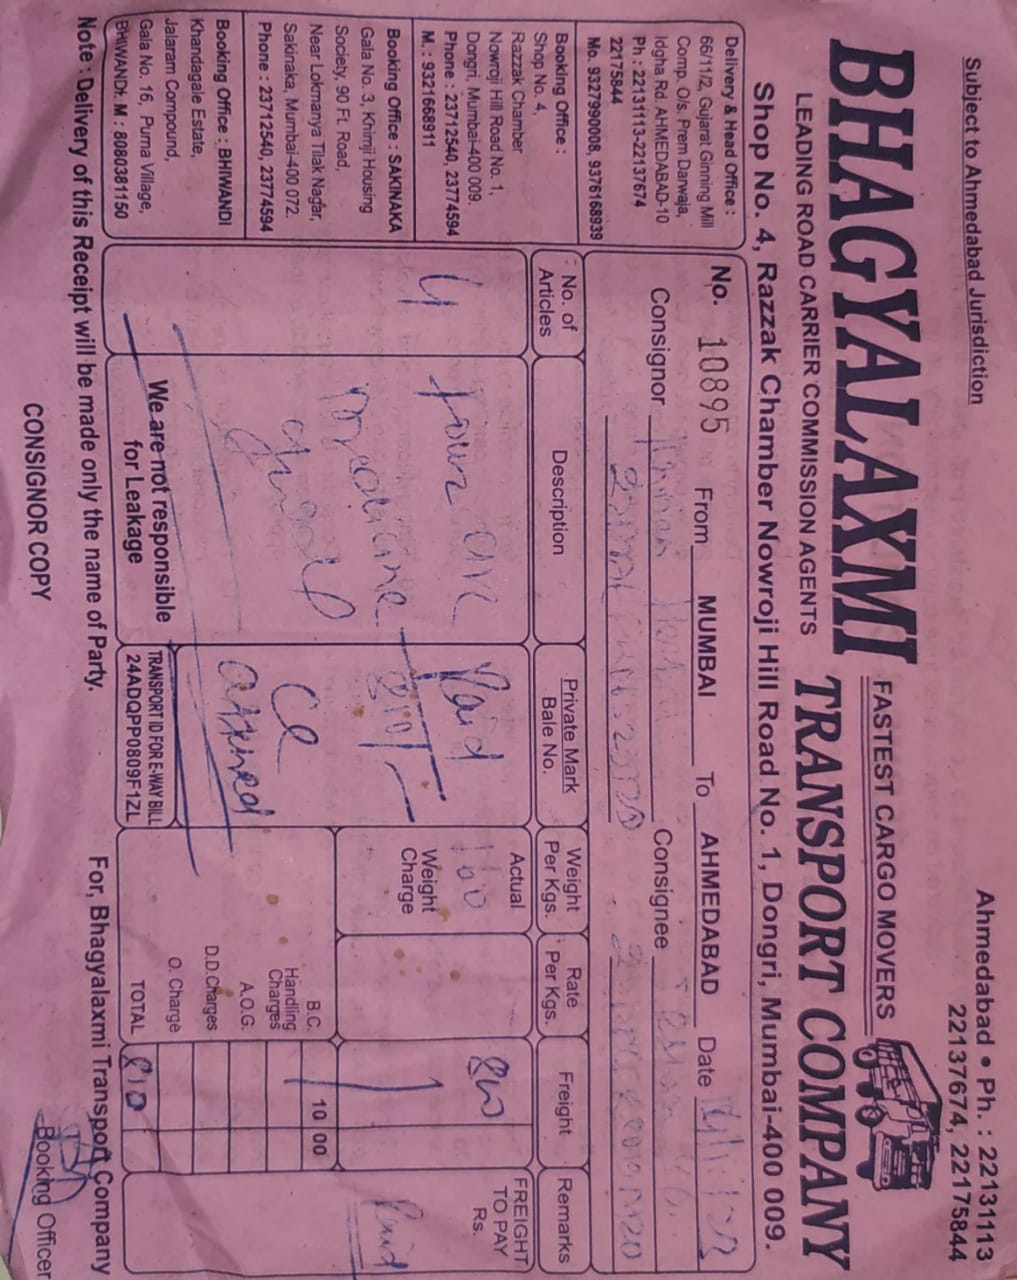 Subject to Ahmedabad Jurisdiction
Ahmedabad • Ph. : 22131113
22137674, 22175844
BHAGYALAXMI
FASTEST CARGO MOVERS
TRANSPORT COMPANY
LEADING ROAD CARRIER COMMISSION AGENTS
Shop No. 4, Razzak Chamber Nowroji Hill Road No. 1, Dongri, Mumbai-400 009.
Delivery & Head Office :
66/11/2, Gujarat Ginning Mill
Comp. O/s. Prem Darwaja,
Idgha Rd. AHMEDABAD-10
Ph : 22131113-22137674
22175844
Mo. 9327990008, 9376168939
Booking Office :
Shop No. 4,
Razzak Chamber
Nowroji Hill Road No. 1,
Dongri, Mumbai-400 009.
Phone : 23712540, 23774594
M. : 9321668911
Booking Office : SAKINAKA
Gala No. 3, Khimji Housing
Society, 90 Ft. Road,
Near Lokmanya Tilak Nagar,
Sakinaka, Mumbai-400 072.
Phone : 23712540, 23774594
Booking Office : BHIWANDI
Khandagale Estate,
Jalaram Compound,
Gala No. 16, Purna Village,
BHIWANDI. M : 8080381150
No. 10895 From MUMBAI To AHMEDABAD Date
Consignor
Consignee
No. of Articles
Description
Private Mark Bale No.
Weight Per Kgs.
Rate Per Kgs.
Freight
Remarks
4
Four
Medicine
Paid
810/-
Actual
160
Weight Charge
800
FREIGHT TO PAY Rs.
Paid
B.C. 10 00
Handling Charges
A.O.G.
D.D.Charges
O. Charge
TOTAL 810
We are not responsible
for Leakage
TRANSPORT ID FOR E-WAY BILL
24ADQPP0809F1ZL
Note : Delivery of this Receipt will be made only the name of Party.
For, Bhagyalaxmi Transport Company
Booking Officer
CONSIGNOR COPY